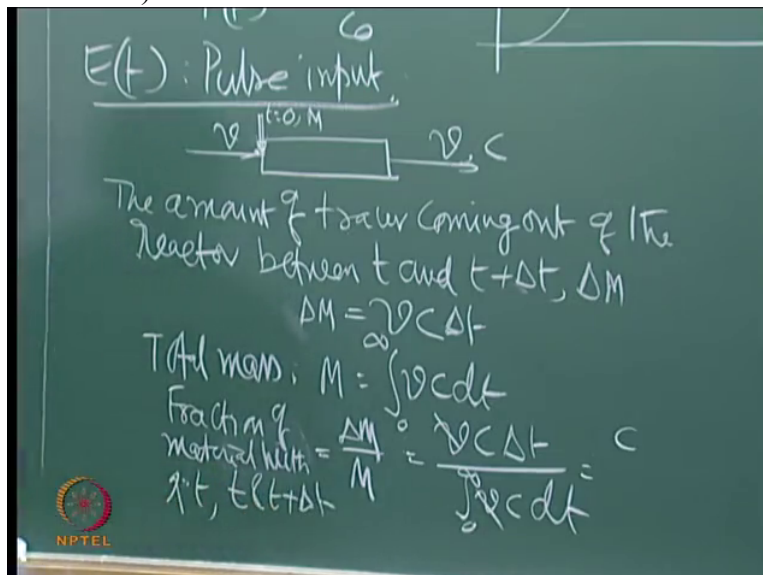 C0
E(t): Pulse input.
t=0, M
v v, C
The amount of tracer coming out of the
reactor between t and t+Δt, ΔM
ΔM = vCΔt
Total mass: M = ∫₀^∞ vCdt
Fraction of
material with = ΔM/M = vCΔt / ∫₀^∞ vCdt = C
t, t & t+Δt
NPTEL